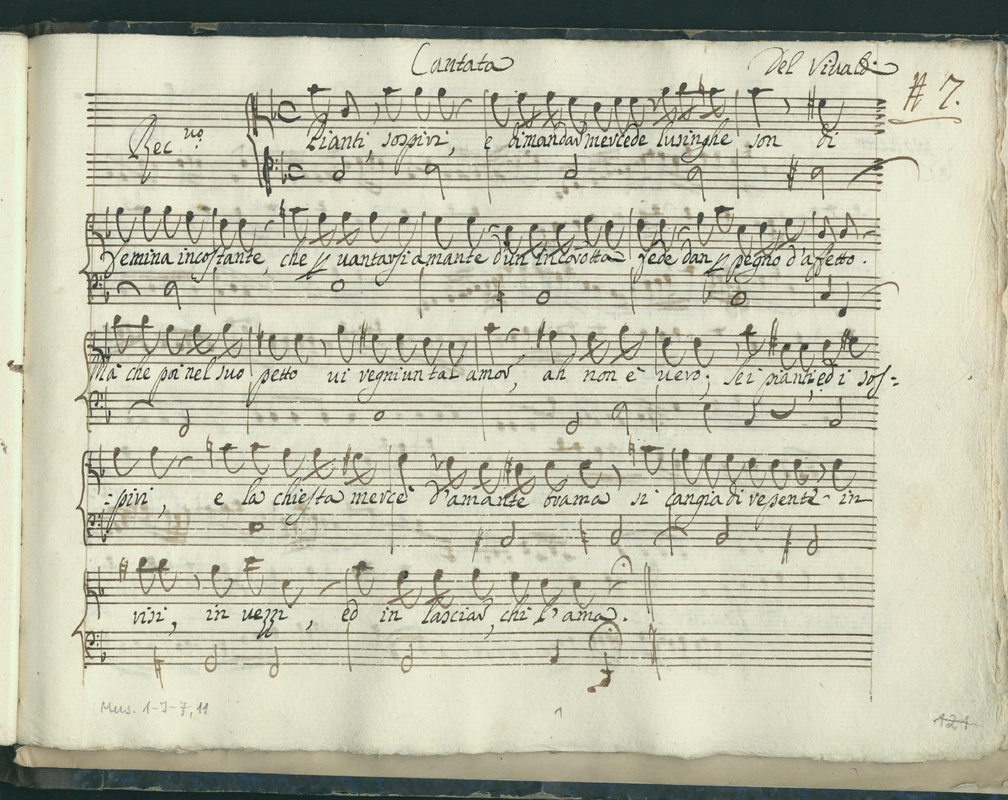 Cantata Del Vivaldi
# 7.
Rec.vo Pianti, sospiri, e dimandar mercede lusinghe son di
femina incostante, che p vantarsi amante d'un incorotta fede dan p pegno d'affetto.
Mà che poi nel suo petto vi regni un tal amor, ah non è vero; se i pianti, ed i sos=
=piri, e la chiesta mercè d'amante brama si cangia di repente in
risi, in vezzi, ed in lasciar, chi l'ama.
Mus. 1-J-7, 11
1
121